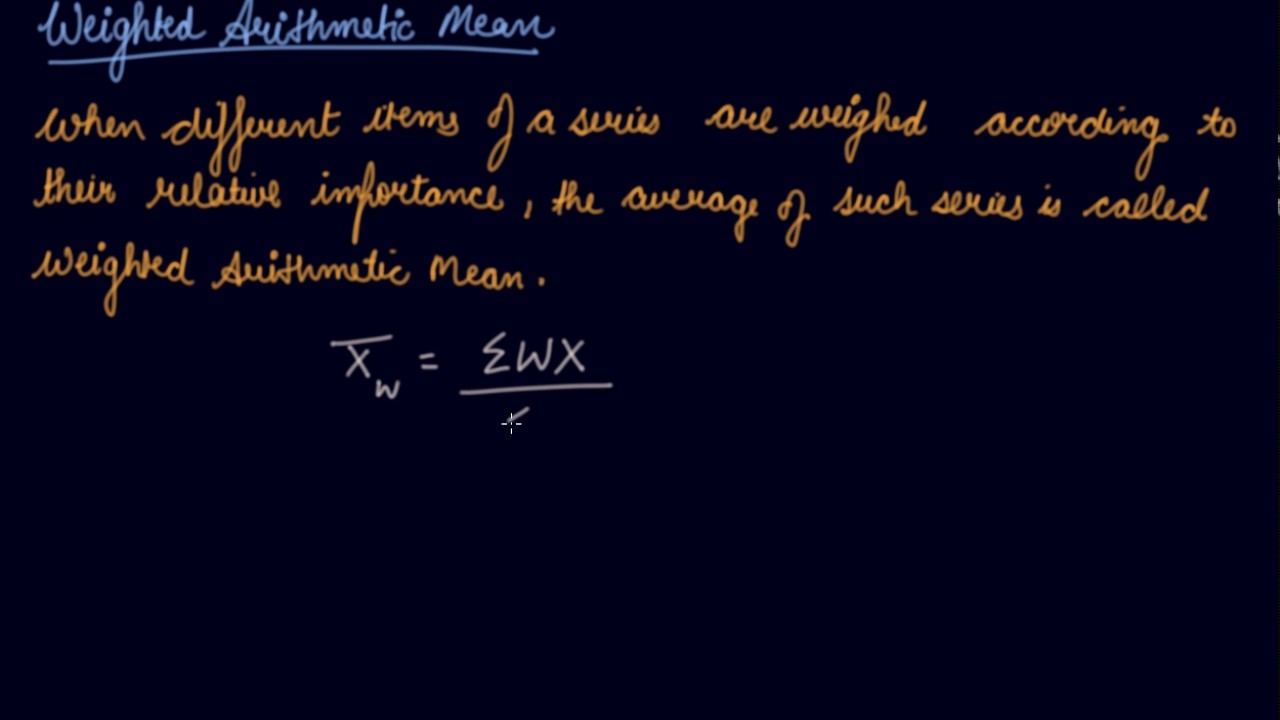 Weighted Arithmetic Mean
When different items of a series are weighed according to
their relative importance, the average of such series is called
Weighted Arithmetic Mean.
X̅w = ΣWX